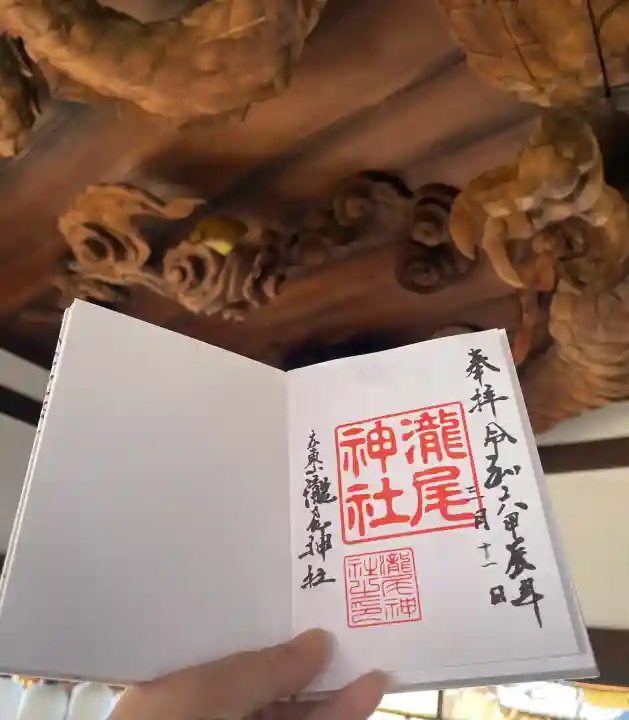 奉拝 令和六甲辰年
三月十一日
瀧尾
神社
瀧尾神
社之印
京東 瀧尾神社